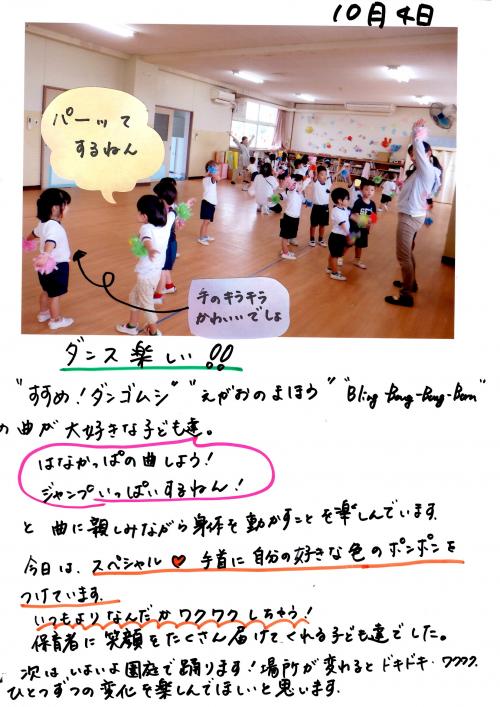 10月4日
パーッて
するねん
手のキラキラ
かわいいでしょ
ダンス楽しい!!
"すすめ!ダンゴムシ" "えがおのまほう" "Bling-Bang-Bang-Born"
の曲が大好きな子ども達。
はなかっぱの曲しよう!
ジャンプいっぱいするねん!
と曲に親しみながら身体を動かすことを楽しんでいます。
今日は、スペシャル♥手首に自分の好きな色のポンポンを
つけています。
いつもよりなんだかワクワクしちゃう!
保育者に笑顔をたくさん届けてくれる子ども達でした。
次はいよいよ園庭で踊ります!場所が変わるとドキドキ・ワクワク。
ひとつずつの変化を楽しんでほしいと思います。